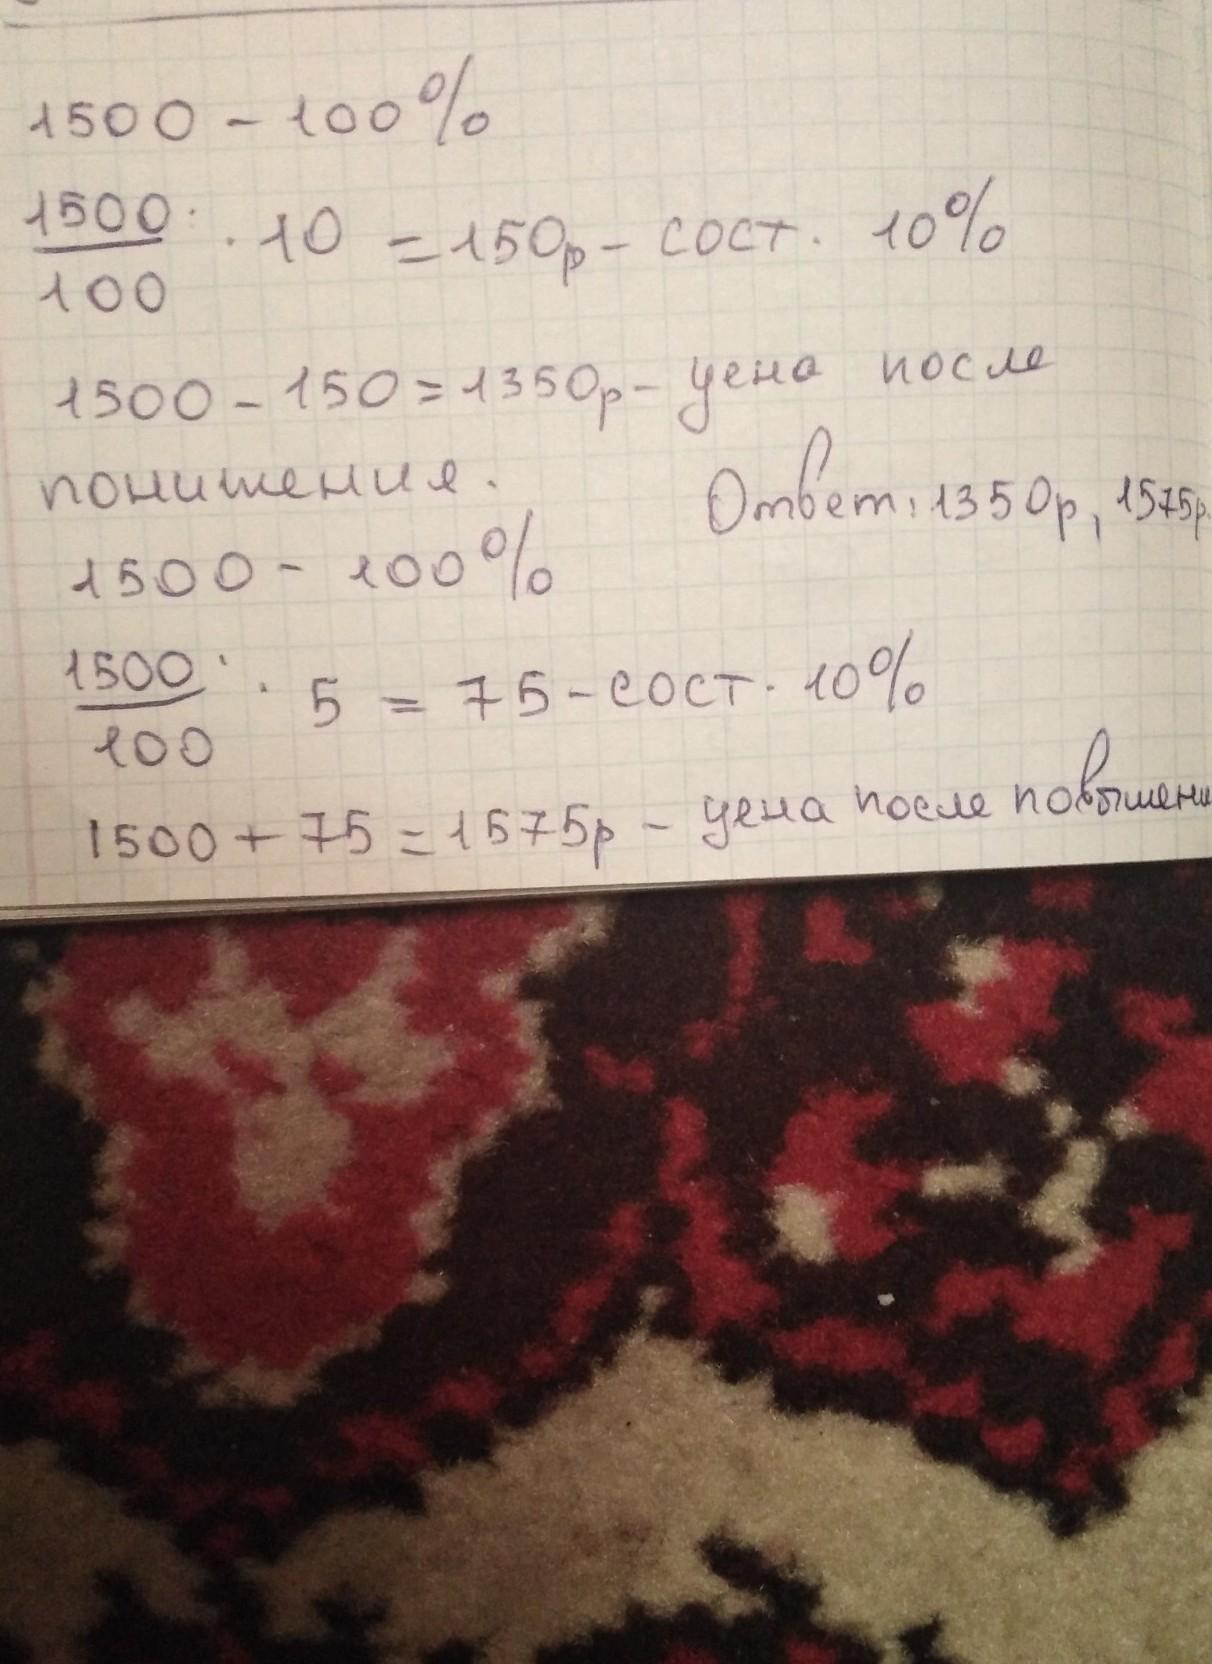 1500 - 100%
1500/100 · 10 = 150р - сост. 10%
1500 - 150 = 1350р - цена после
понишения.
Ответ: 1350р, 1575р.
1500 - 100%
1500/100 · 5 = 75 - сост. 10%
1500 + 75 = 1575р - цена после повышени